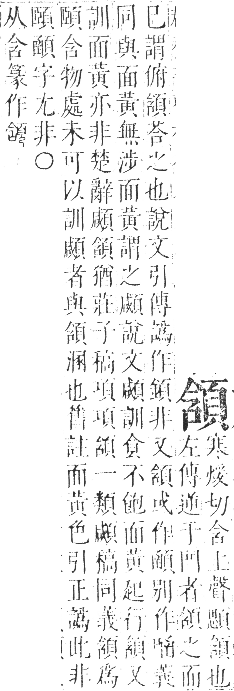 頷
寒煖切含上聲頤頷也
左傳逆于門者頷之而
巳謂俯頷荅之也說文引傳譌作顉非又頷或作顄別作義
同與面黃無涉面黃謂之顑說文顑訓食不飽面黃起行頷又
訓面黃亦非楚辭顑頷猶莊子稿項項頷一類顑稿同義頷爲
頤含物處未可以訓顑者與頷溷也舊註面黃色引正譌此非
頤顄字尤非〇
从含篆作頷